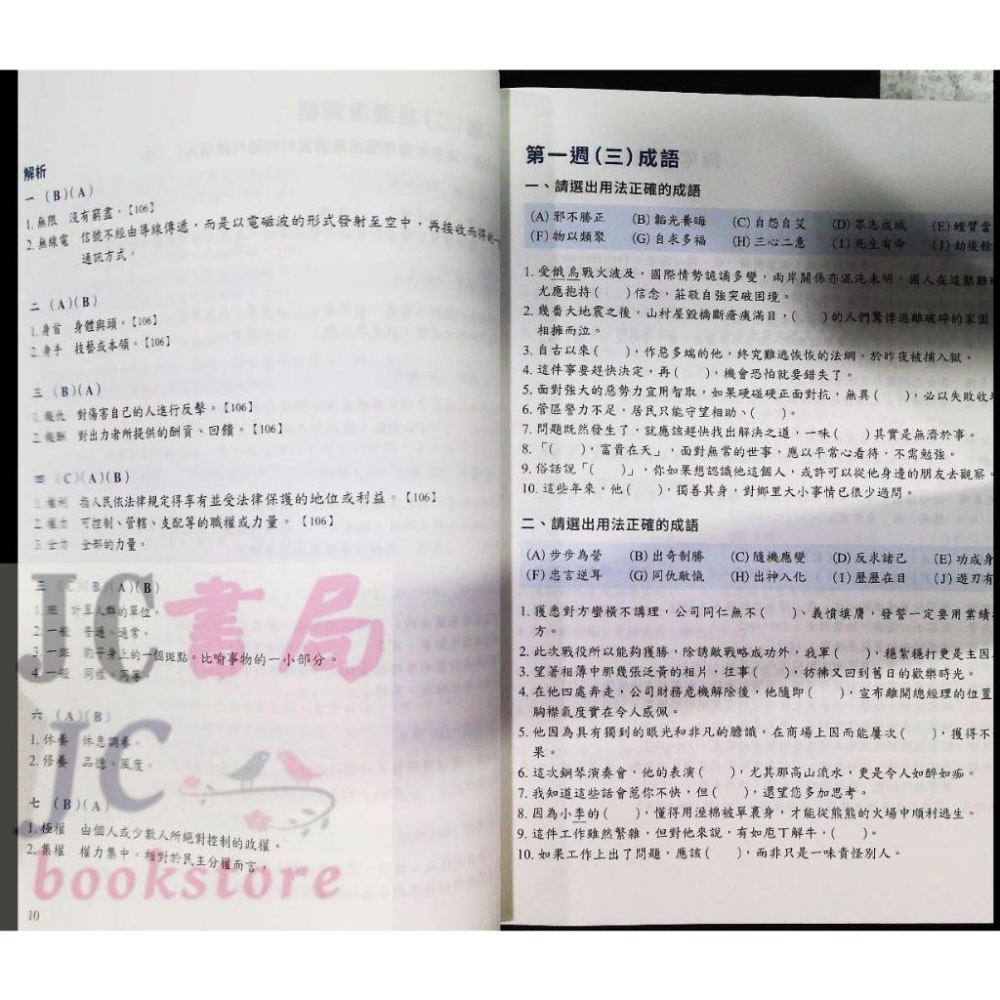 解析
一 (B)(A)
1. 無限 沒有窮盡。【106】
2. 無線電 信號不經由導線傳遞，而是以電磁波的形式發射至空中，再接收而得的一
通訊方式。
二 (A)(B)
1. 身首 身體與頭。【106】
2. 身手 技藝或本領。【106】
三 (B)(A)
1. 報仇 對傷害自己的人進行反擊。【106】
2. 報酬 對出力者所提供的酬資、回饋。【106】
(C)(A)(B)
1. 權利 指人民依法律規定得享有並受法律保護的地位或利益。【106】
2. 權力 可控制、管轄、支配等的職權或力量。【106】
3. 全力 全部的力量。
(C)(B)(A)(B)
1. 班 計算人群的單位。
2. 一般 普通、通常。
3. 一斑 豹子身上的一個斑點。比喻事物的一小部分。
4. 一般 同樣、同等。
六 (A)(B)
1. 休養 休息調養。
2. 修養 品德、風度。
七 (B)(A)
1. 極權 由個人或少數人所絕對控制的政權。
2. 集權 權力集中。相對於民主分權而言。
10
JC書局
JC
bookstore
第一週(三)成語
一、請選出用法正確的成語
(A) 邪不勝正 (B) 韜光養晦 (C) 自怨自艾 (D) 眾志成城 (E) 螳臂當
(F) 物以類聚 (G) 自求多福 (H) 三心二意 (I) 死生有命 (J) 劫後餘
1. 受俄烏戰火波及，國際情勢詭譎多變，兩岸關係亦混沌未明，國人在這艱難時
尤應抱持( )信念，莊敬自強突破困境。
2. 幾番大地震之後，山村屋毀橋斷瘡痍滿目，( )的人們驚悸逃離破碎的家園
相擁而泣。
3. 自古以來( )，作惡多端的他，終究難逃恢恢的法網，於昨夜被捕入獄。
4. 這件事要趕快決定，再( )，機會恐怕就要錯失了。
5. 面對強大的惡勢力宜用智取，如果硬碰硬正面對抗，無異( )，必以失敗收場
6. 管區警力不足，居民只能守望相助、( )。
7. 問題既然發生了，就應該趕快找出解決之道，一味( )其實是無濟於事。
8. 「( )，富貴在天」，面對無常的世事，應以平常心看待，不需勉強。
9. 俗話說「( )」，你如果想認識他這個人，或許可以從他身邊的朋友去觀察。
10. 這些年來，他( )，獨善其身，對鄉里大小事情已很少過問。
二、請選出用法正確的成語
(A) 步步為營 (B) 出奇制勝 (C) 隨機應變 (D) 反求諸己 (E) 功成身
(F) 忠言逆耳 (G) 同仇敵愾 (H) 出神入化 (I) 歷歷在目 (J) 遊刃有
1. 獲悉對方蠻橫不講理，公司同仁無不( )、義憤填膺，發誓一定要用業績
方。
2. 此次戰役所以能夠獲勝，除誘敵戰略成功外，我軍( )，穩紮穩打更是主因
3. 望著相簿中那幾張泛黃的相片，往事( )，彷彿又回到舊日的歡樂時光。
4. 在他四處奔走，公司財務危機解除後，他隨即( )，宣布離開總經理的位置
胸襟氣度實在令人感佩。
5. 他因為具有獨到的眼光和非凡的膽識，在商場上因而能屢次( )，獲得不
果。
6. 這次鋼琴演奏會，他的表演( )，尤其那高山流水，更是令人如醉如痴。
7. 我知道這些話會惹你不快，但( )，還望您多加思考。
8. 因為小李的( )，懂得用溼棉被單裹身，才能從熊熊的火場中順利逃生。
9. 這件工作雖然繁雜，但對他來說，有如庖丁解牛，( )。
10. 如果工作上出了問題，應該( )，而非只是一味責怪別人。